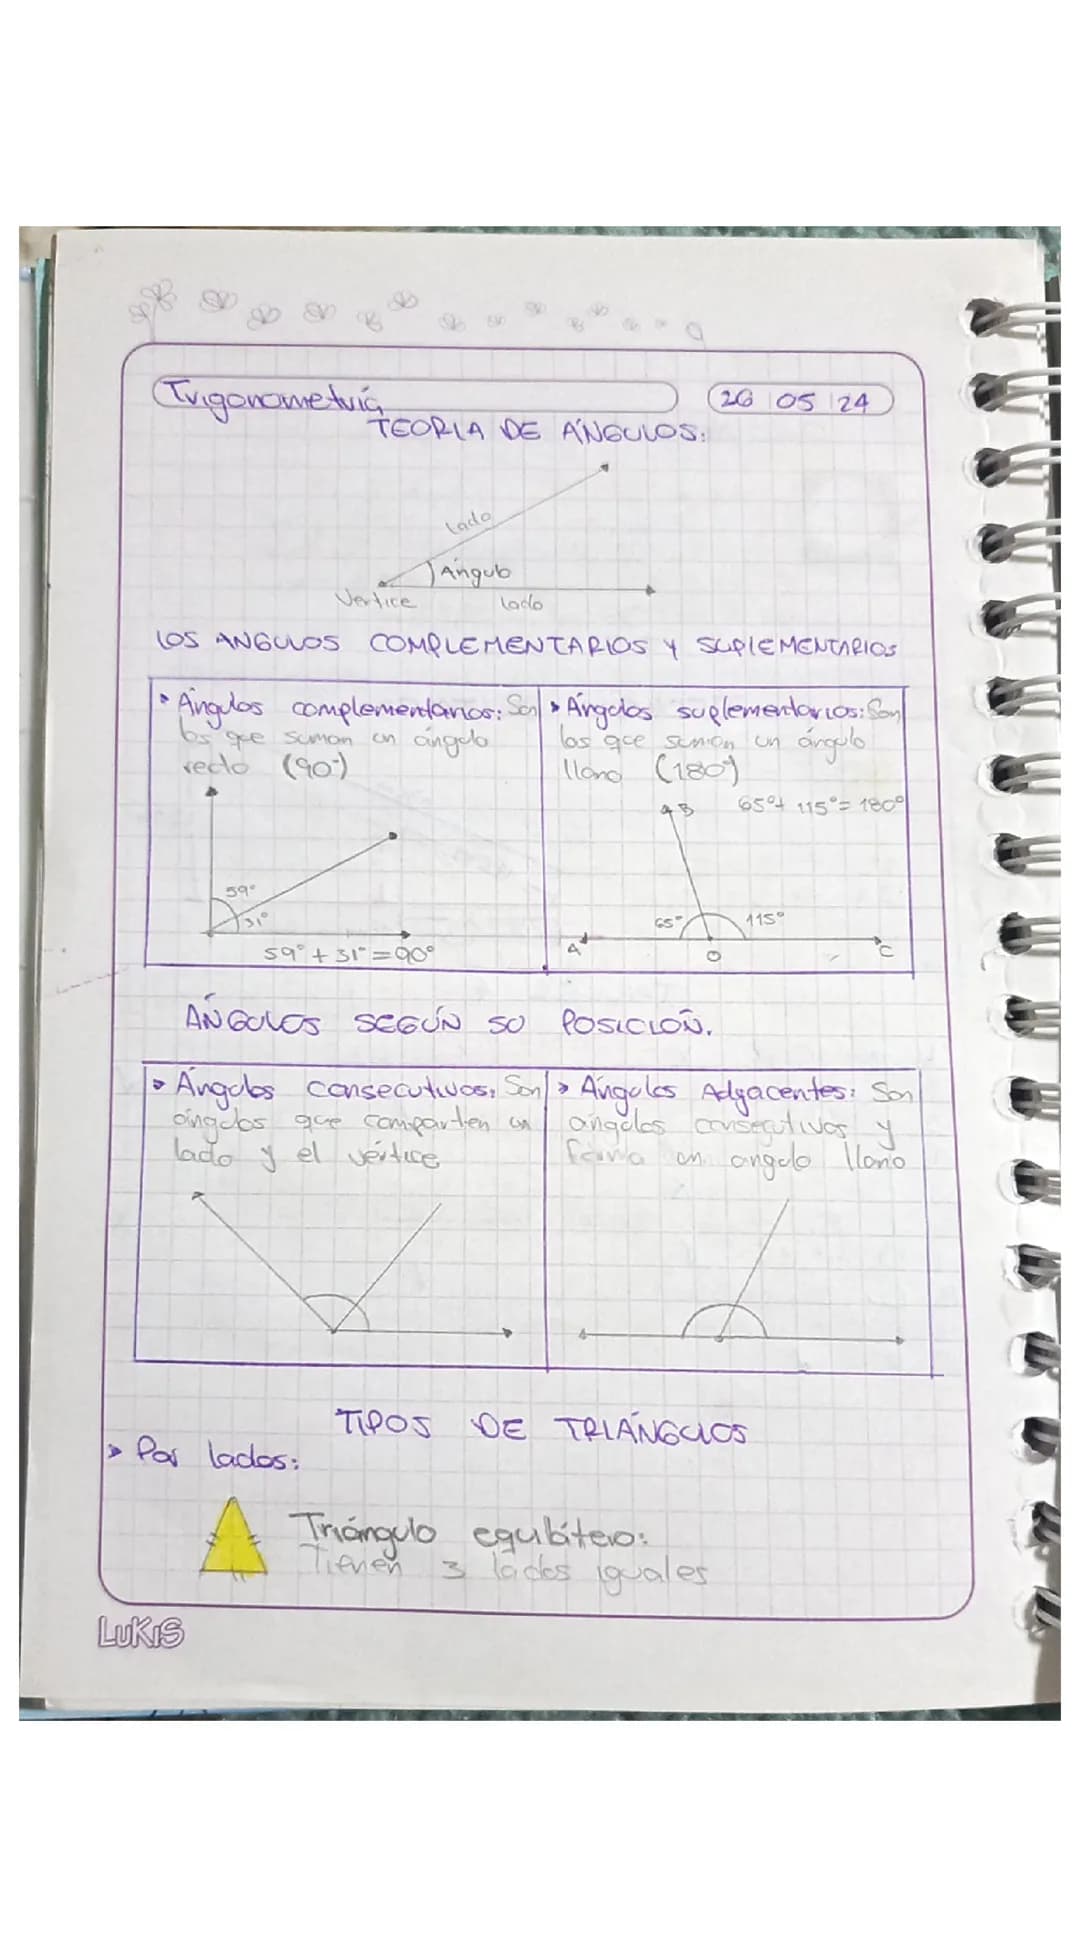 Trigonometría
26 05 24
TEORIA DE ÁNGULOS:
Lado
Ángulo
Vertice
Lado
LOS ANGULOS COMPLEMENTARIOS Y SUPLEMENTARIOS
Ángulos complementarios: Son
los que suman un ángulo
recto (90°)
59°
31°
59° + 31° = 90°
Ángulos suplementarios: Son
los que suman un ángulo
llano (180°)
65° + 115° = 180°
B
65°
115°
A
O
C
ÁNGULOS SEGÚN SU POSICIÓN.
Ángulos consecutivos: Son
ángulos que comparten un
lado y el vértice
Ángulos Adyacentes: Son
ángulos consecutivos y
forma un angulo llano
TIPOS DE TRIÁNGULOS
Por lados:
Triángulo equilátero:
Tienen 3 lados iguales
LUKIS